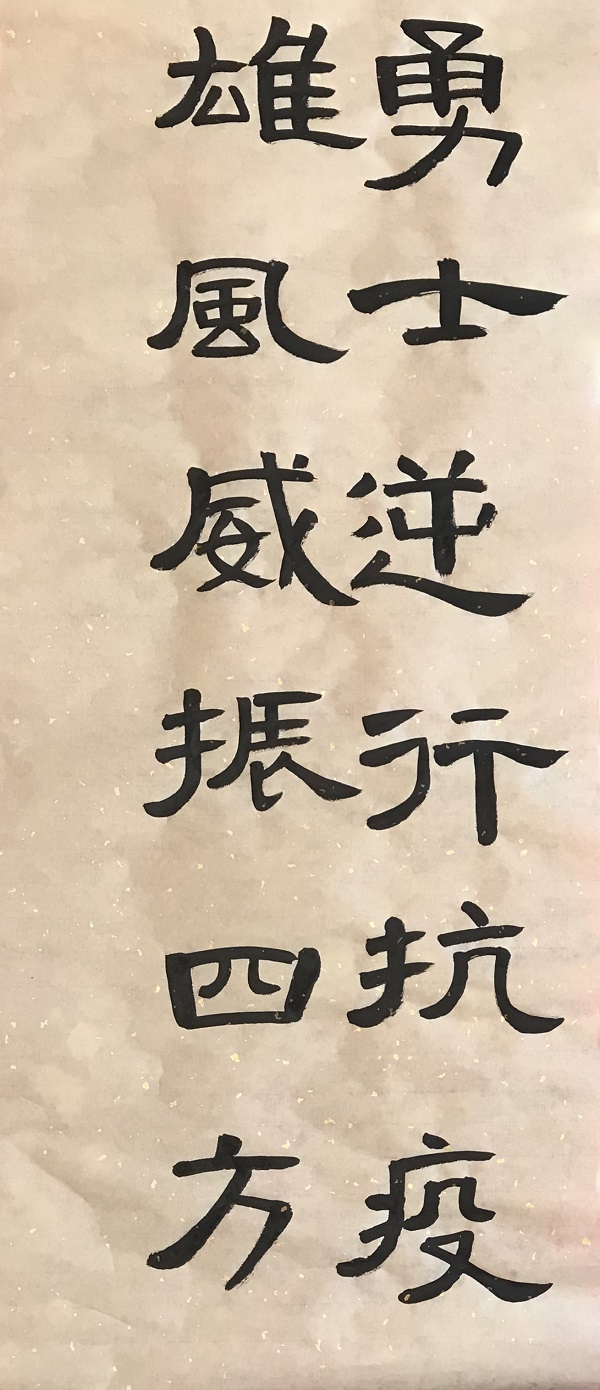 勇士逆行抗疫
雄風威振四方